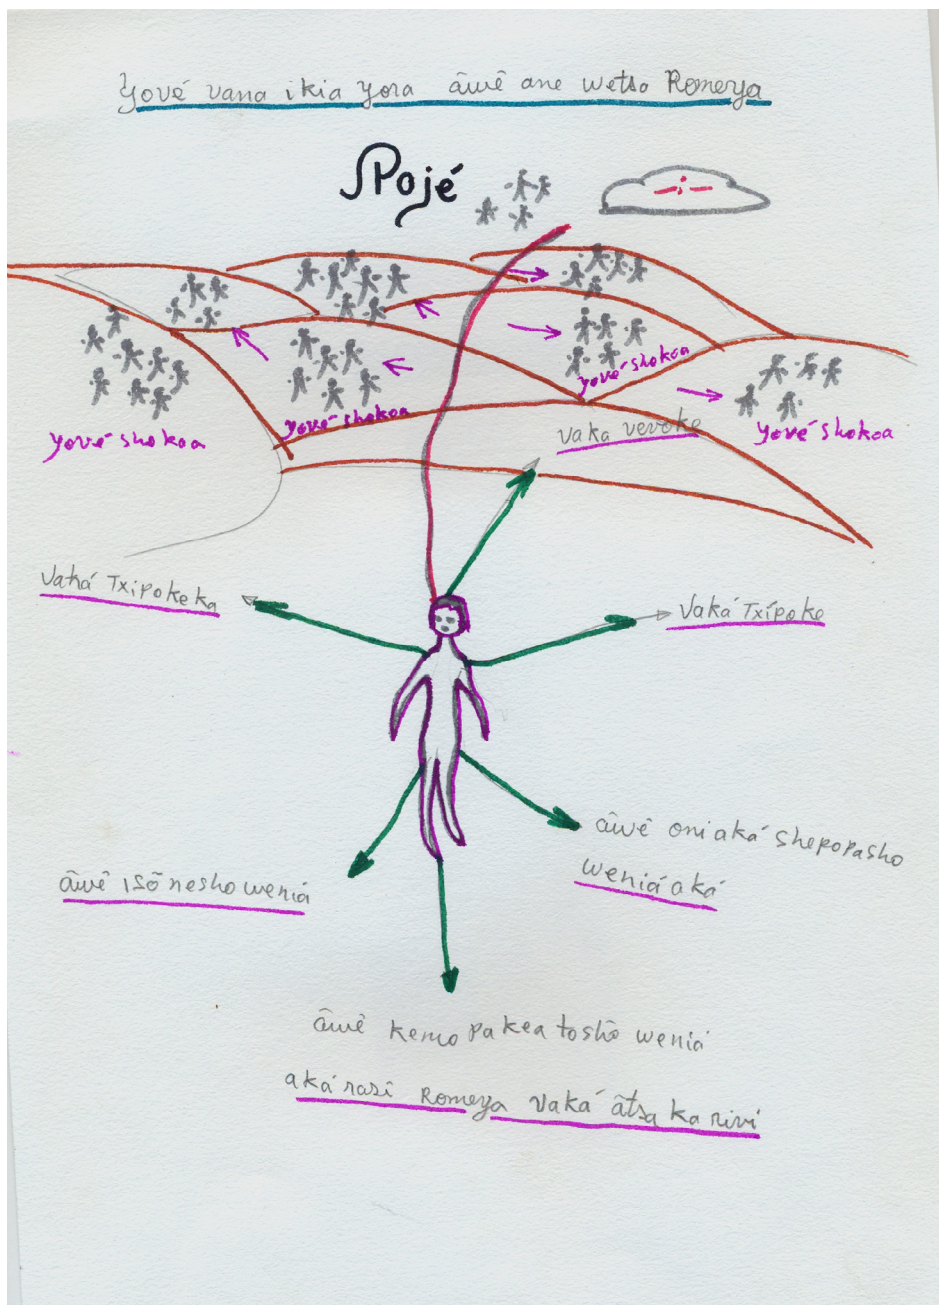 Yové vana ikia yora ãwẽ ane wetsa Romeya
Pojé
yové shokoa
yové shokoa
yové shokoa
yové shokoa
vaka vevoke
Vaká Txipokeka
Vaká Txípoke
ãwẽ oniaká shepopasho
weniá aká
ãwẽ isõ nesho weniá
ãwẽ kemo pakea toshõ weniá
aká rasĩ Romeya vaká ãtsa ka riví